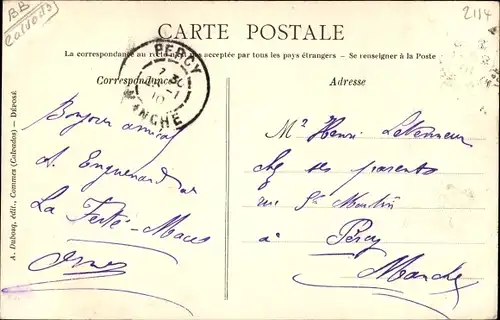 BB
Calvados
2114
CARTE POSTALE
La correspondance au recto n'est pas acceptée par tous les pays étrangers — Se renseigner à la Poste
Correspondance
Adresse
PERCY
MANCHE
A. Dubosq, édit., Commes (Calvados) — DÉPOSÉ
Bonjour amical
La Ferté-Macé
Mr Henri Letenneur
chez ses parents
rue St Martin
à Percy
Manche